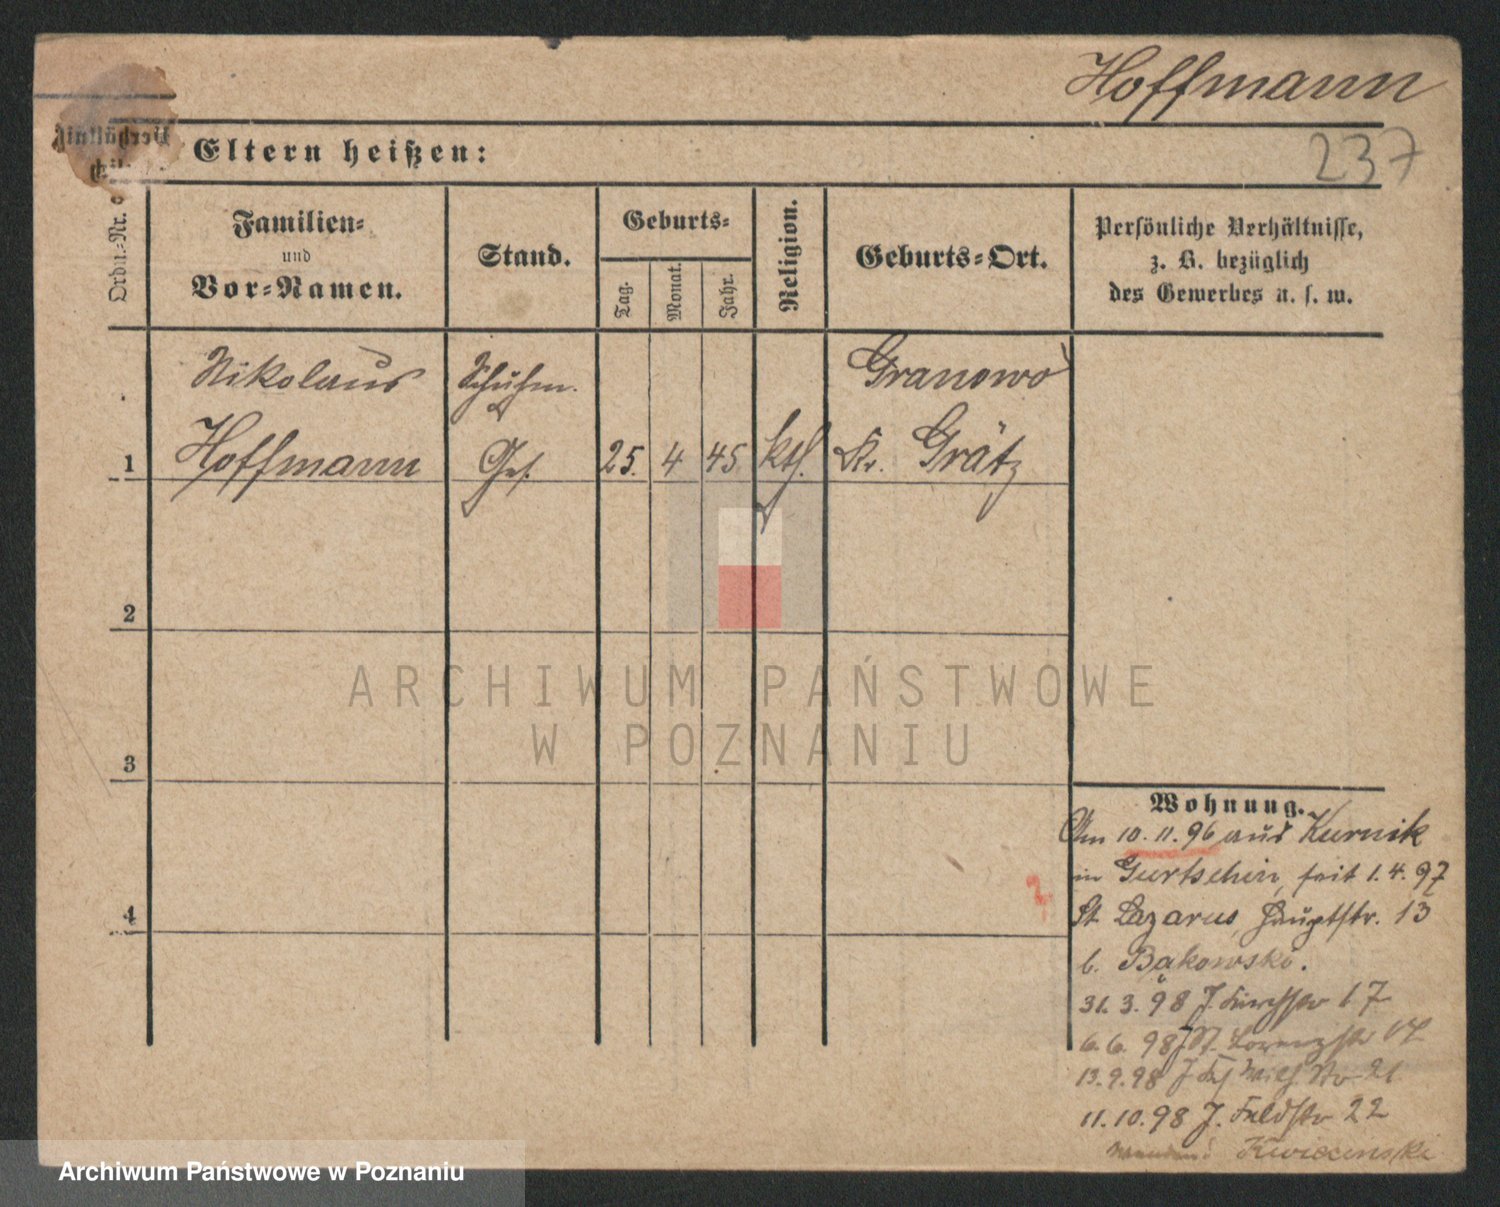 Hoffmann
237
Verhältniß
Eltern heißen:
Ordn.-Nr.
Familien-
und
Vor-Namen.
Stand.
Geburts-
Tag.
Monat.
Jahr.
Religion.
Geburts-Ort.
Persönliche Verhältnisse,
z. B. bezüglich
des Gewerbes u. s. w.
Nikolaus Schuhm. Granowo
1 Hoffmann Ges. 25. 4 45 kth. Kr. Grätz
2
3
4
Wohnung.
Am 10.11.96 aus Kurnik
in Gurtschin, seit 1.4.97
St Lazarus, Hauptstr. 13
b. Bąkowski.
31.3.98 J. 17
6.6.98 J. St. Lorenzstr
13.9.98 J 21
11.10.98 J. Feldstr 22
Kwiecinski
ARCHIWUM PAŃSTWOWE
W POZNANIU
Archiwum Państwowe w Poznaniu